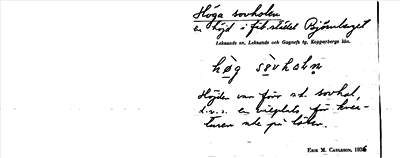 Höga sovholen
en höjd i fäbstället Björnberget
Leksands sn, Leksands och Gagnefs tg, Kopparbergs län.
hög sovholn
Höjden var förr s.k. sovhol,
d.v.s. en vilplats för krea-
turen ute på låten.
Erik M. Carlsson, 1936